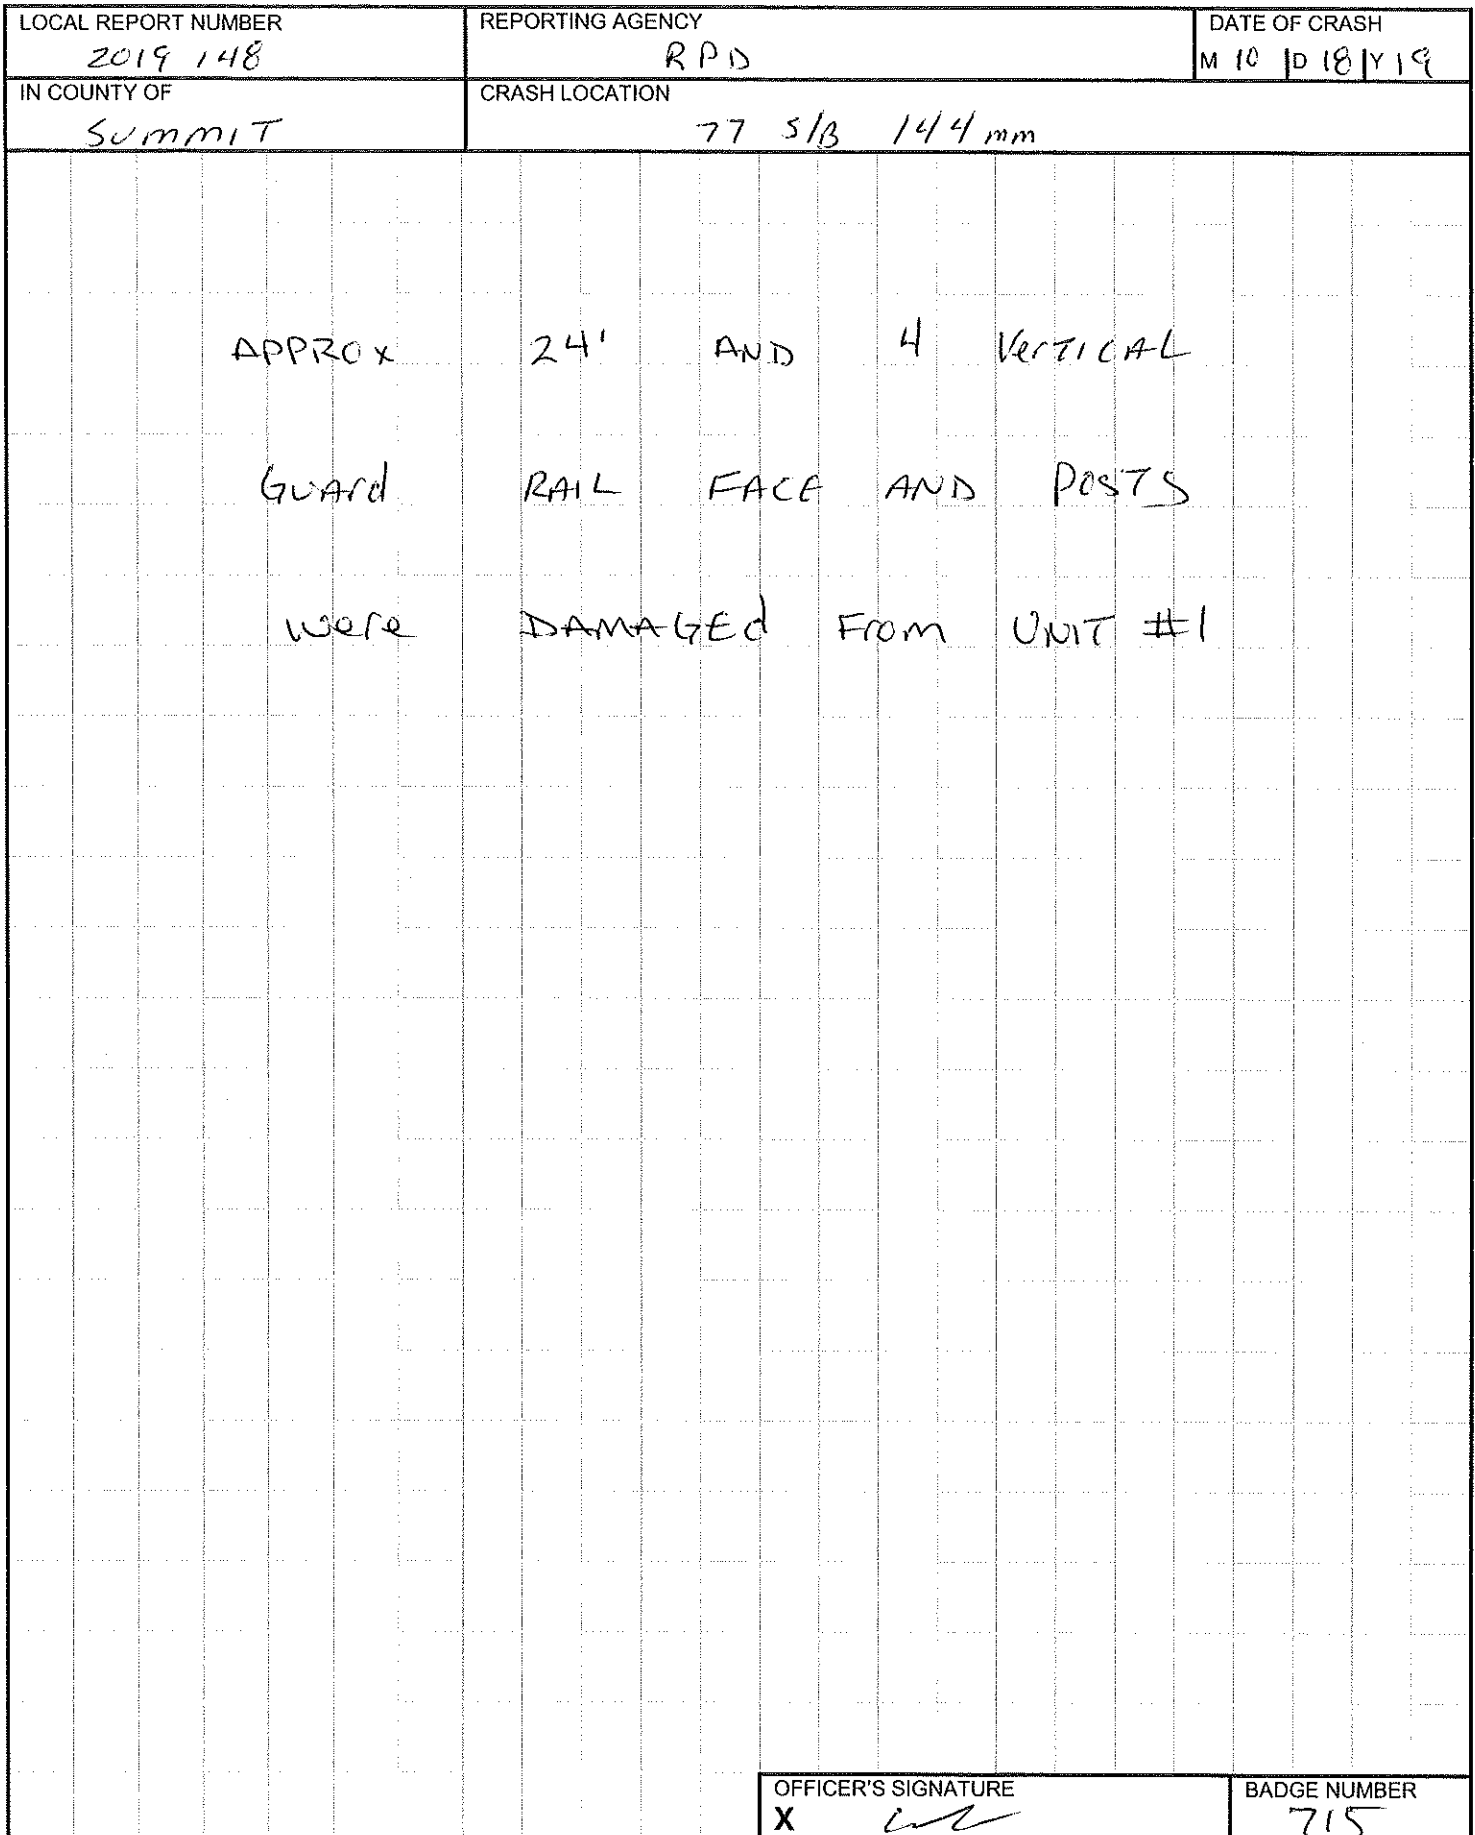 LOCAL REPORT NUMBER REPORTING AGENCY DATE OF CRASH
2019 148 RPD M 10 D 18 Y 19
IN COUNTY OF CRASH LOCATION
SUMMIT 77 S/B 144 mm
APPROX 24' AND 4 VerTICAL
GUArd RAIL FACE AND POSTS
were DAMAGEd From UNIT #1
OFFICER'S SIGNATURE BADGE NUMBER
X 715